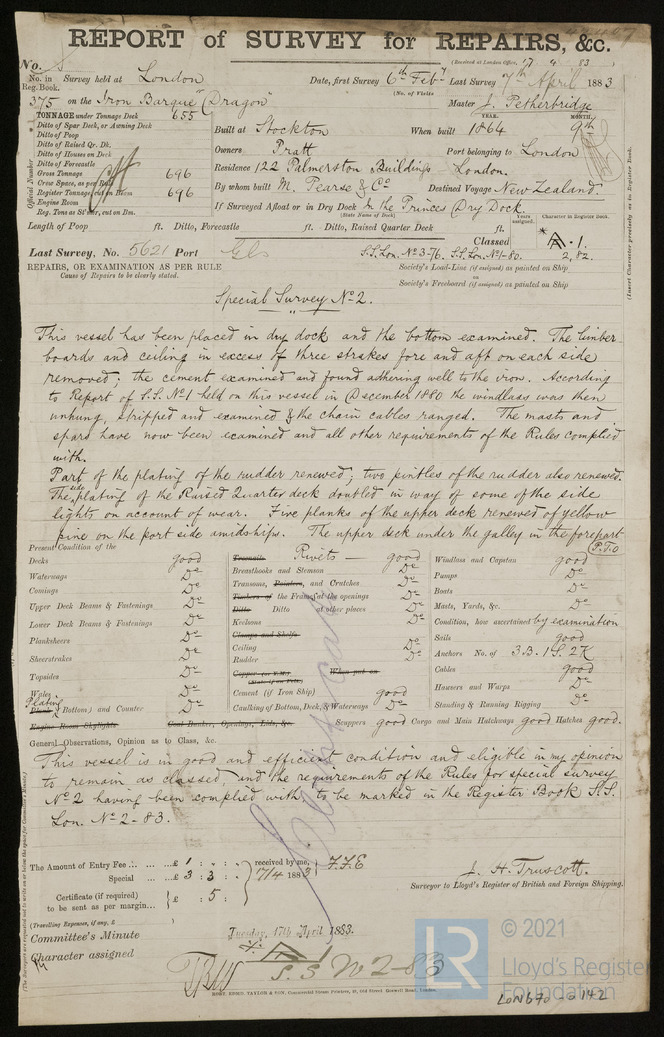 REPORT of SURVEY for REPAIRS, &c.
(Received at London Office, 17 4 83
No. in Reg. Book. Survey held at London Date, first Survey 6th Feby Last Survey 7th April 1883
(No. of Visits
375 on the Iron Barque "Dragon" Master J. Petherbridge
TONNAGE under Tonnage Deck 655
Ditto of Spar Deck, or Awning Deck
Ditto of Poop
Ditto of Raised Qr. Dk.
Ditto of Houses on Deck
Ditto of Forecastle
Gross Tonnage 696
Crew Space, as per Rule
Register Tonnage, cut on Beam 696
Engine Room
Reg. Tons as St'mer, cut on Bm.
Official Number
YEAR. MONTH.
Built at Stockton When built 1864 9th
Owners Pratt Port belonging to London
Residence 122 Palmerston Buildings London.
By whom built M. Pearse & Co Destined Voyage New Zealand.
If Surveyed Afloat or in Dry Dock In the Princes Dry Dock.
(State Name of Dock)
Length of Poop ft. Ditto, Forecastle ft. Ditto, Raised Quarter Deck ft.
Years assigned. Character in Register Book.
(Insert Character precisely as in Register Book.
Last Survey, No. 5621 Port Gls Classed A.1.
S.S. Lon. No 3-76. S.S. Lon. No 1-80. 2,82.
REPAIRS, OR EXAMINATION AS PER RULE
Cause of Repairs to be clearly stated.
Society's Load-Line (if assigned) as painted on Ship
Society's Freeboard (if assigned) as painted on Ship
Special Survey No 2.
This vessel has been placed in dry dock and the bottom examined. The limber
boards and ceiling in excess of three strakes fore and aft on each side
removed; the cement examined and found adhering well to the iron. According
to Report of S.S. No 1 held on this vessel in December 1880 the windlass was then
unhung, stripped and examined & the chain cables ranged. The masts and
spars have now been examined and all other requirements of the Rules complied
with.
Part of the plating of the rudder renewed; two pintles of the rudder also renewed.
The side plating of the Raised Quarter deck doubled in way of some of the side
lights on account of wear. Five planks of the upper deck renewed of yellow
pine on the port side amidships. The upper deck under the galley in the forepart
P.T.O
Present Condition of the
Decks good
Waterways Do
Comings Do
Upper Deck Beams & Fastenings Do
Lower Deck Beams & Fastenings Do
Planksheers Do
Sheerstrakes Do
Topsides Do
Wales Do
Plating
Plank (Bottom) and Counter Do
Engine Room Skylights Coal Bunker, Openings, Lids, &c.
Treenails Rivets — good
Breasthooks and Stemson Do
Transoms, Pointers, and Crutches Do
Timbers of the Frame at the openings Do
Ditto Ditto at other places Do
Keelsons Do
Clamps and Shelfs
Ceiling Do
Rudder Do
When put on
Cement (if Iron Ship) good
Caulking of Bottom, Deck, & Waterways Do
Scuppers good Cargo and Main Hatchways good Hatches good.
Windlass and Capstan good
Pumps Do
Boats Do
Masts, Yards, &c. Do
Condition, how ascertained by examination
Sails good
Anchors No. of 3.B. 1S. 2K
Cables good
Hawsers and Warps Do
Standing & Running Rigging Do
General Observations, Opinion as to Class, &c.
This vessel is in good and efficient condition and eligible in my opinion
to remain as classed, and the requirements of the Rules for special survey
No 2 having been complied with, to be marked in the Register Book S.S.
Lon. No 2-83.
The Amount of Entry Fee ... £ 1 : - : - received by me, F.F.E
Special ... £ 3 : 3 : 17/4 1883
Certificate (if required) £ : 5 :
to be sent as per margin...
(Travelling Expenses, if any, £ )
J. H. Truscott.
Surveyor to Lloyd's Register of British and Foreign Shipping.
Committee's Minute Tuesday, 17th April 1883.
Character assigned A 1
S.S No 2-83
© 2021
LR
Lloyd's Register
Foundation
LON670-0142